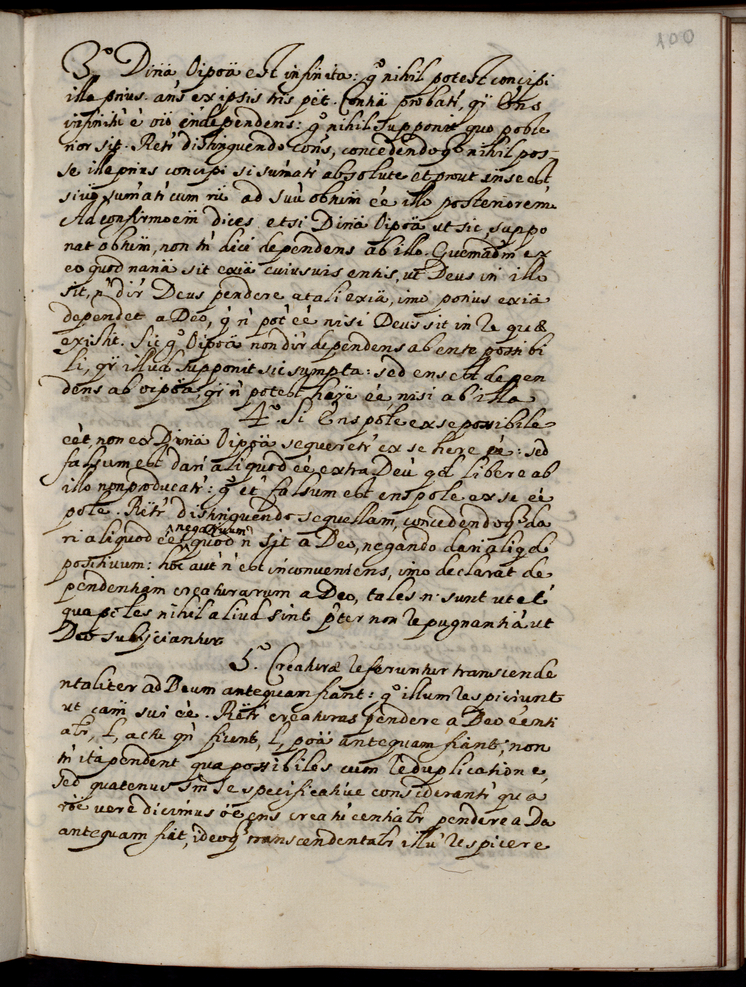 100
3º Dinã Oipoã est infinita: gº nihil potest concipi
illa prius. añs ex ipsis tris pet. Conña probatr, qr Ens
infinitũ ẽ oiõ independens: gº nihil supponit quo poste
rior sit. Retr distinguendo cons, concedendoqꝫ nihil pos-
se illa prius concipi si sumatr absolute et prout in se est
si vᵒ sumatr cum rñ ad suũ obtum ẽe illo posteriorem
Ad confirmoẽm dices etsi Dinã Oipoã ut sic, suppo
nat obtum, non tñ dici dependens ab illo. Quemadm ex
eo quod nanã sit exiã cuiusuis entis, ut Deus in illo
sit, ñ dir Deus pendere a tali exiã, imo potius exiã
dependet a Deo, qꝫ ñ pot ẽe nisi Deus sit in re quæ
existit. Sic gº Oipoã non dir dependens ab ente possibi
li, qr illud supponit sic sumpta: sed ens est depen
dens ab oipoã, qr ñ potest hẽre ẽe, nisi ab illa
4º. Si Ens pole ex se possibile
eet, non ex Dinã Oipoã sequeretr ex se hẽre ẽe: sed
falsum est dari aliquod ẽe extra Deũ qd libere ab
illo non producatr: gº et falsum est ens pole ex se ẽe
pole. Retr distinguendo sequellam, concedendoqꝫ da
ri aliquod ẽe negatiuum quod ñ sit a Deo, negando dari aliqd
positiuum: hoc aut ñ est inconueniens, imo declarat de
pendentiam creaturarum a Deo, tales n. sunt ut et
qua poles nihil aliud sint pter non repugnantiã, ut
Deo subijciantur
5º. Creaturæ referuntur transcende
ntaliter ad Deum antequam fiant: gº illum respiciunt
ut caũ sui ẽe. Retr creaturas pendere a Deo eenti
alr, l, actu qñ fiunt, l, poã antequam fiant; non
tñ ita pendent qua possibiles cum reduplicatione,
sed quatenus sm se specificatiue considerantr qua
rõe vere dicimus õe ens creatũ eentialr pendere a Deo
antequam fiat, ideoqꝫ transcendentalr illũ respicere